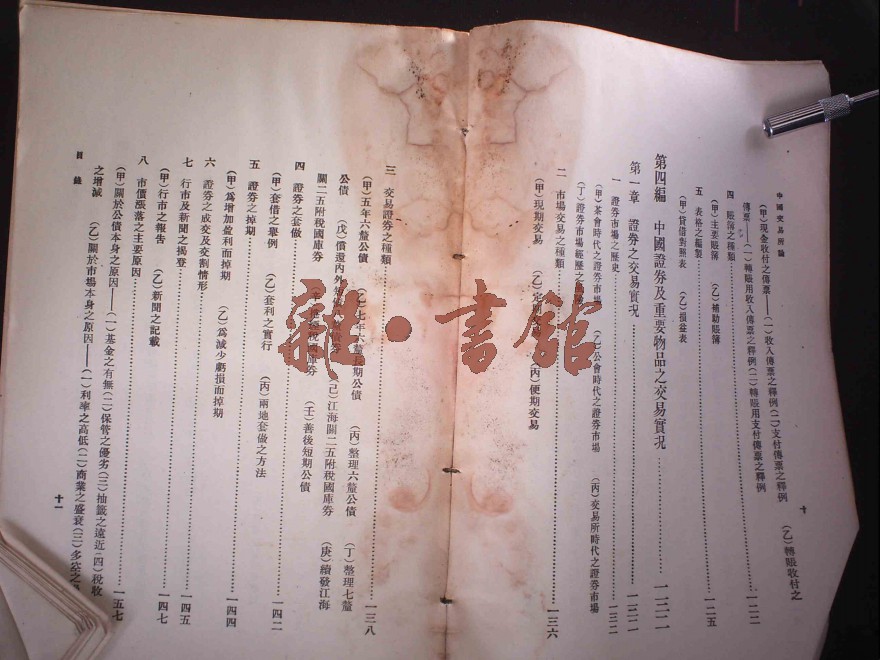 中國交易所論
(甲)現金收付之傳票——(一)收入傳票之釋例(二)支付傳票之釋例 (乙)轉賬收付之
傳票——(一)轉賬用收入傳票之釋例(二)轉賬用支付傳票之釋例
四 賬簿之種類 一二二
(甲)主要賬簿 (乙)補助賬簿
五 表格之編製 一二五
(甲)貸借對照表 (乙)損益表
第四編 中國證券及重要物品之交易實況
第一章 證券之交易實況
一 證券市場之歷史
(甲)茶會時代之證券市場 (乙)公會時代之證券市場 (丙)交易所時代之證券市場
(丁)證券市場經歷之
二 市場交易之種類 一三六
(甲)現期交易 (乙)定期 (丙)便期交易
十
三 交易證券之種類 一三八
(甲)五年六釐公債 (乙)七年六釐長期公債 (丙)整理六釐公債 (丁)整理七釐
公債 (戊)償還內外 (己)江海關二五附稅國庫券 (庚)續發江海
關二五附稅國庫券 (壬)善後短期公債
四 證券之套做 一四二
(甲)套借之舉例 (乙)套利之實行 (丙)兩地套做之方法
五 證券之掉期
(甲)為增加盈利而掉期 (乙)為減少虧損而掉期
六 證券之成交及交割情形 一四四
七 行市及新聞之揭登 一四五
(甲)行市之報告 (乙)新聞之記載
八 市價漲落之主要原因 一四七
(甲)關於公債本身之原因——(一)基金之有無(二)保管之優劣(三)抽籤之遠近(四)稅收
之增減 (乙)關於市場本身之原因——(一)利率之高低(二)商業之盛衰(三)多空之
一五七
目錄
十一
雜·書館